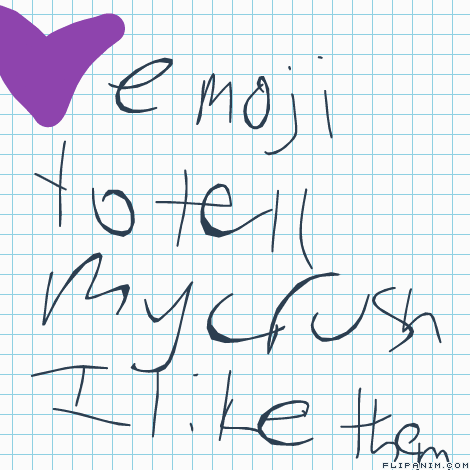 emoji
Yo tell
My crush
I like them
FLIPANIM.COM